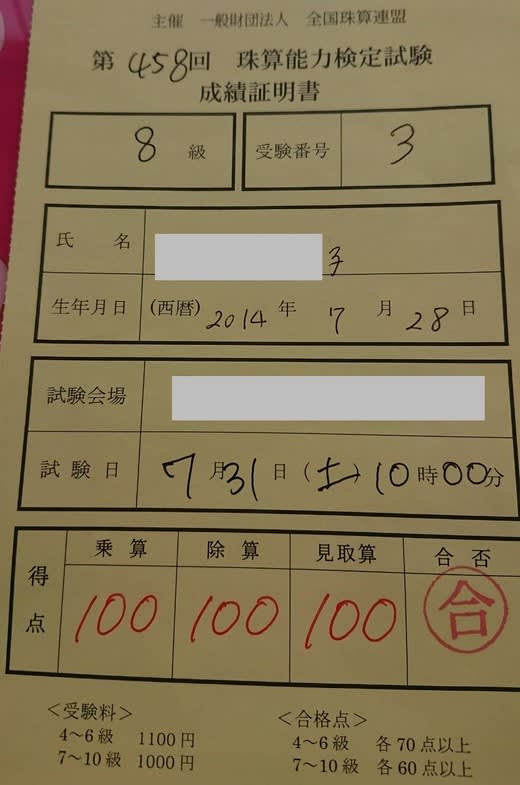 主催 一般財団法人 全国珠算連盟
第458回 珠算能力検定試験
成績証明書
8 級 受験番号 3
氏 名 子
生年月日 (西暦) 2014 年 7 月 28 日
試験会場
試験日 7月31日(土)10時00分
得点 乗算 除算 見取算 合否
100 100 100 合
<受験料> <合格点>
4～6級 1100円 4～6級 各70点以上
7～10級 1000円 7～10級 各60点以上